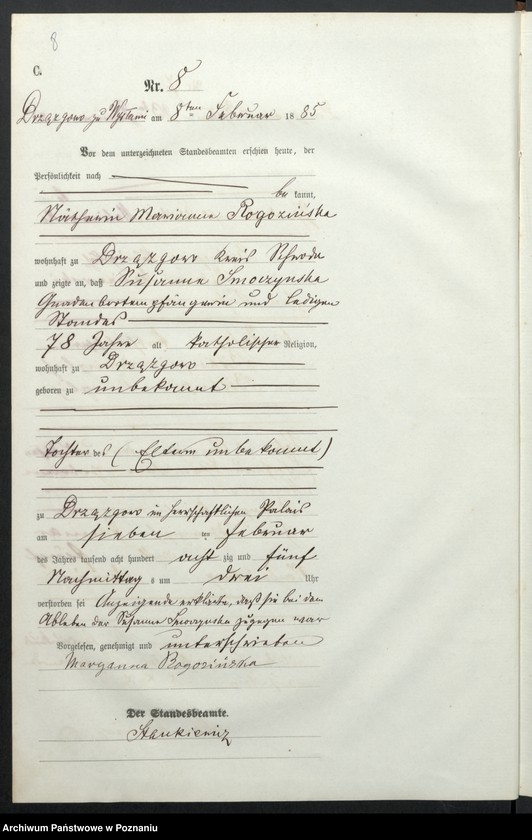 8
C.
Nr. 8
Drzązgowo zu am 8ten Februar 1885
Vor dem unterzeichneten Standesbeamten erschien heute, der
Persönlichkeit nach
be kannt,
Nätherin Marianne Rogozińska
wohnhaft zu Drzązgowo Kreis Schroda
und zeigte an, daß Susanne Smoczynska
Gnadenbrotempfängerin und ledigen
Standes
78 Jahre alt katholischer Religion,
wohnhaft zu Drzązgowo
geboren zu unbekannt
Tochter des (Eltern unbekannt)
zu Drzązgowo im herrschaftlichen Palais
am sieben ten Februar
des Jahres tausend acht hundert acht zig und fünf
Nachmittag s um drei Uhr
verstorben sei Anzeigende erklärte, daß sie bei dem
Ableben der Susanne Smoczynska zugegen war
Vorgelesen, genehmigt und unterschrieben
Maryanna Rogozińska
Der Standesbeamte.
Stankiewicz
Archiwum Państwowe w Poznaniu